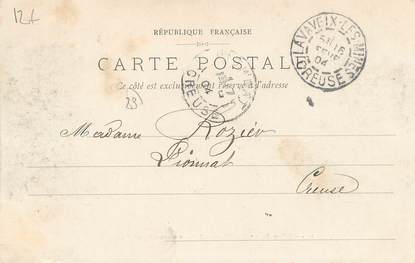 12f
RÉPUBLIQUE FRANÇAISE
CARTE POSTALE
Ce côté est exclusivement réservé à l'adresse
LAVAVEIX-LES-MINES
04
CREUSE
04
CREUSE
23
Madame Rozier
Pionnat
Creuse